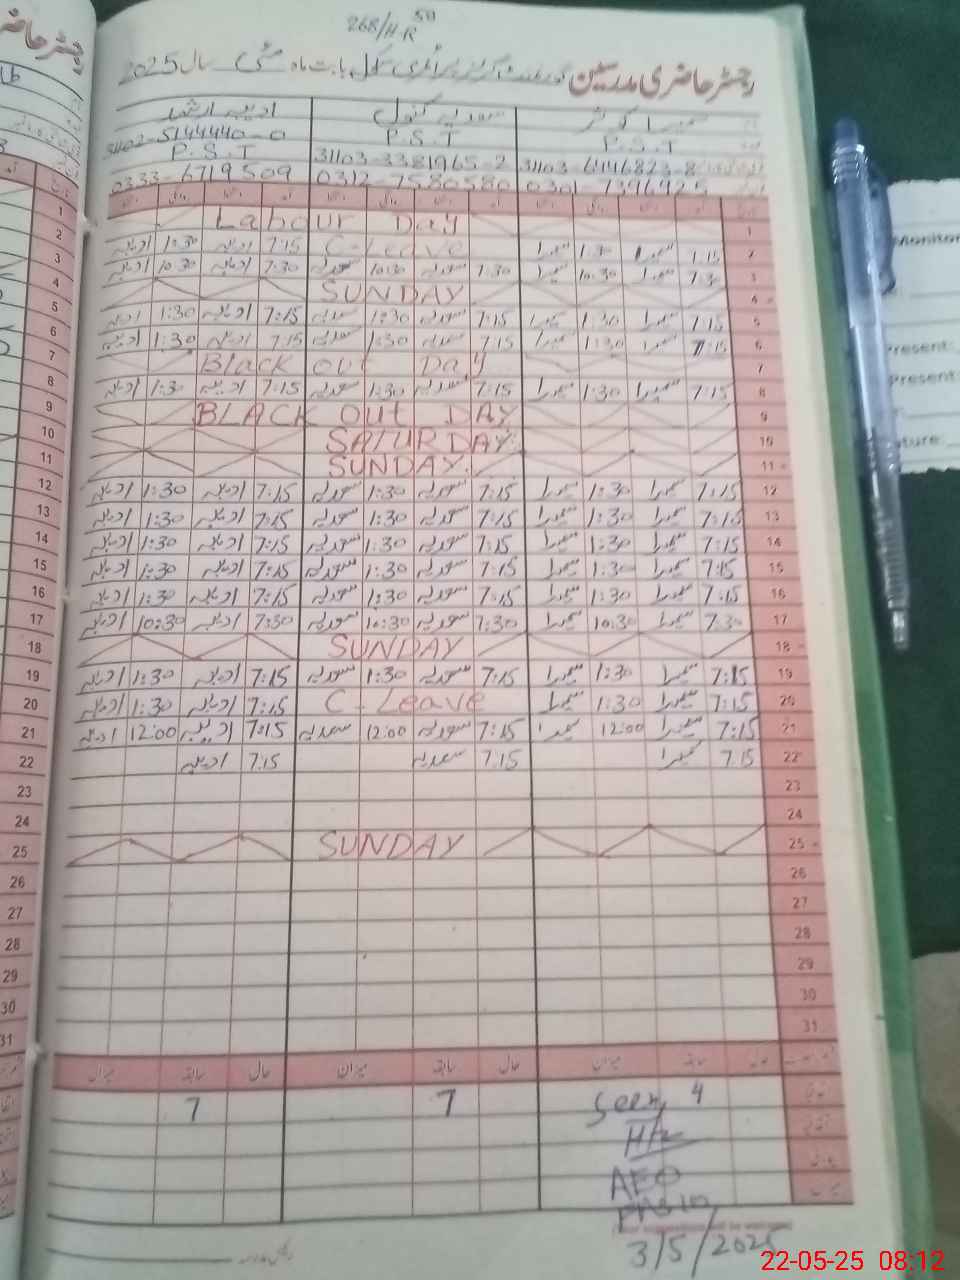 268/H-R
رجسٹر حاضری مدرسین گورنمنٹ گرلز پرائمری سکول بابت ماہ مئی سال 2025
سمیرا کوثر سعدیہ کنول ادیبہ ارشد
P.S.T P.S.T P.S.T
31103-6146823-8 31103-3381965-2 31102-5144440-0
0301-7396925 0312-7580580 0333-6719509
1 Labour Day 1
2 7:15 سمیرا 1:30 سمیرا C-Leave 7:15 ادیبہ 1:30 ادیبہ 2
3 7:30 سمیرا 10:30 سمیرا 7:30 سعدیہ 10:30 سعدیہ 7:30 ادیبہ 10:30 ادیبہ 3
4 SUNDAY 4
5 7:15 سمیرا 1:30 سمیرا 7:15 سعدیہ 1:30 سعدیہ 7:15 ادیبہ 1:30 ادیبہ 5
6 7:15 سمیرا 1:30 سمیرا 7:15 سعدیہ 1:30 سعدیہ 7:15 ادیبہ 1:30 ادیبہ 6
7 Black out Day 7
8 7:15 سمیرا 1:30 سمیرا 7:15 سعدیہ 1:30 سعدیہ 7:15 ادیبہ 1:30 ادیبہ 8
9 BLACK OUT DAY 9
10 SATURDAY. 10
11 SUNDAY. 11
12 7:15 سمیرا 1:30 سمیرا 7:15 سعدیہ 1:30 سعدیہ 7:15 ادیبہ 1:30 ادیبہ 12
13 7:15 سمیرا 1:30 سمیرا 7:15 سعدیہ 1:30 سعدیہ 7:15 ادیبہ 1:30 ادیبہ 13
14 7:15 سمیرا 1:30 سمیرا 7:15 سعدیہ 1:30 سعدیہ 7:15 ادیبہ 1:30 ادیبہ 14
15 7:15 سمیرا 1:30 سمیرا 7:15 سعدیہ 1:30 سعدیہ 7:15 ادیبہ 1:30 ادیبہ 15
16 7:15 سمیرا 1:30 سمیرا 7:15 سعدیہ 1:30 سعدیہ 7:15 ادیبہ 1:30 ادیبہ 16
17 7:30 سمیرا 10:30 سمیرا 7:30 سعدیہ 10:30 سعدیہ 7:30 ادیبہ 10:30 ادیبہ 17
18 SUNDAY 18
19 7:15 سمیرا 1:30 سمیرا 7:15 سعدیہ 1:30 سعدیہ 7:15 ادیبہ 1:30 ادیبہ 19
20 7:15 سمیرا 1:30 سمیرا C-Leave 7:15 ادیبہ 1:30 ادیبہ 20
21 7:15 سمیرا 12:00 سمیرا 7:15 سعدیہ 12:00 سعدیہ 7:15 ادیبہ 12:00 ادیبہ 21
22 7:15 سمیرا 7:15 سعدیہ 7:15 ادیبہ 22
23 23
24 24
25 SUNDAY 25
26 26
27 27
28 28
29 29
30 30
31 31
حال سابقہ میزان حال سابقہ میزان حال سابقہ میزان
4 7 7
Seen
AEO
3/5/2025
Monitor
Present:
Present:
22-05-25 08:12